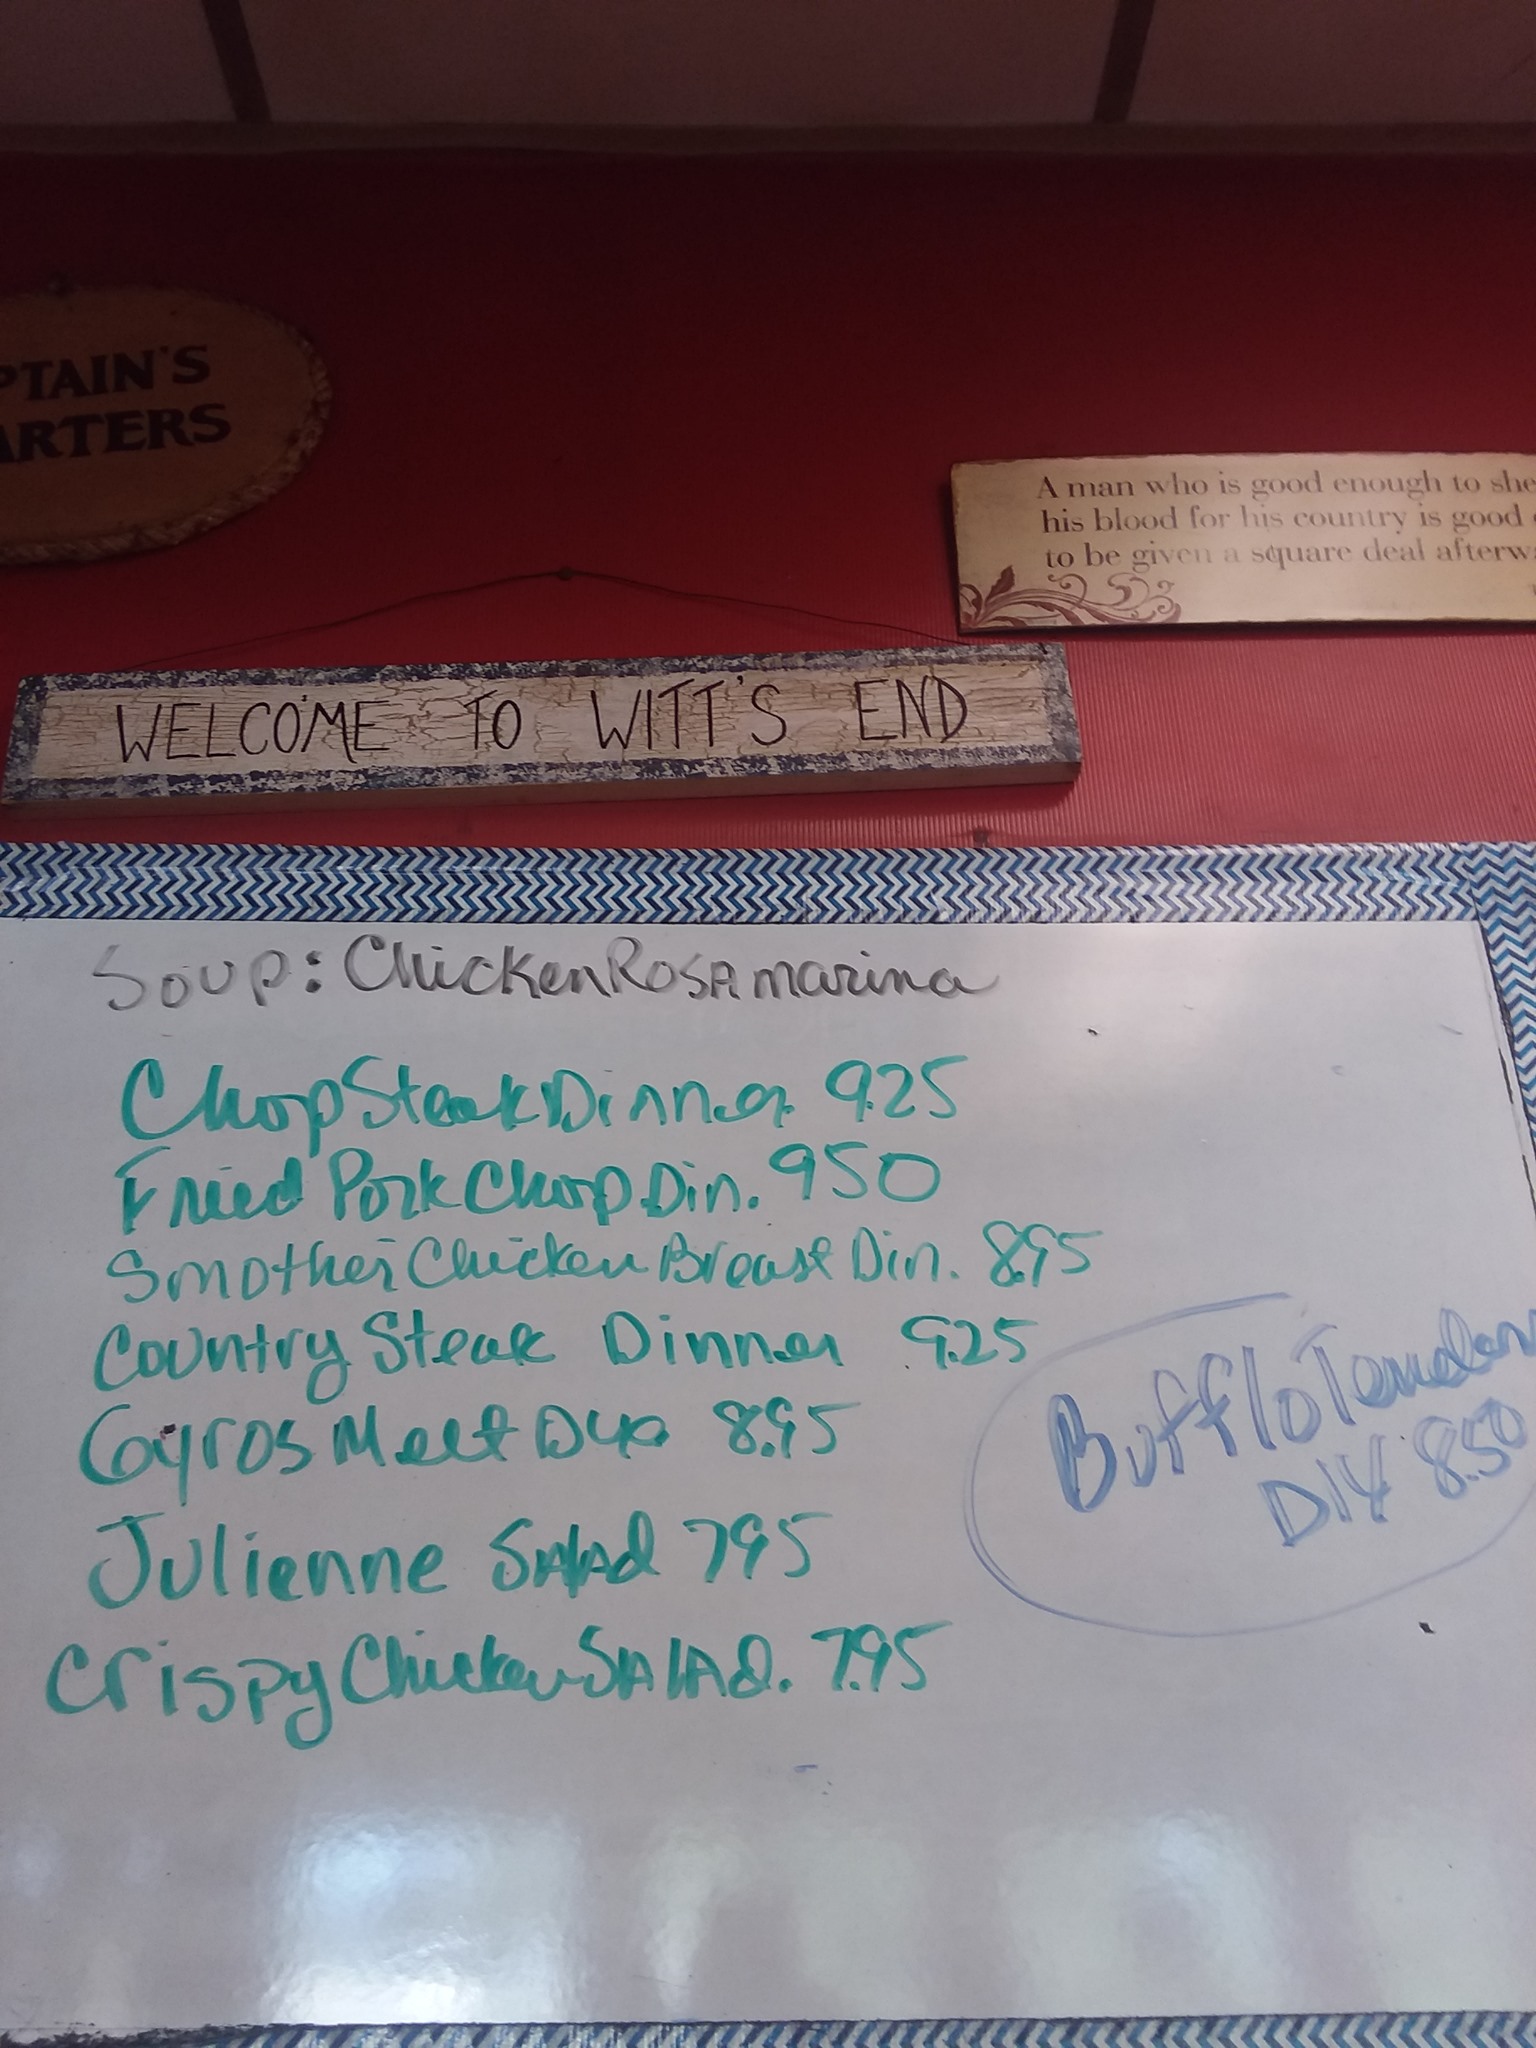 PTAIN'S
ARTERS
A man who is good enough to she
his blood for his country is good
to be given a square deal afterwa
WELCOME TO WITT'S END
Soup: Chicken Rosamarina
Chop Steak Dinner 9.25
Fried Pork Chop Din. 950
Smother Chicken Breast Din. 8.95
Country Steak Dinner 9.25
Gyros Melt Dux 8.95
Julienne Salad 795
Crispy Chicken Salad. 7.95
Bufflo Tender
DLX 8.50